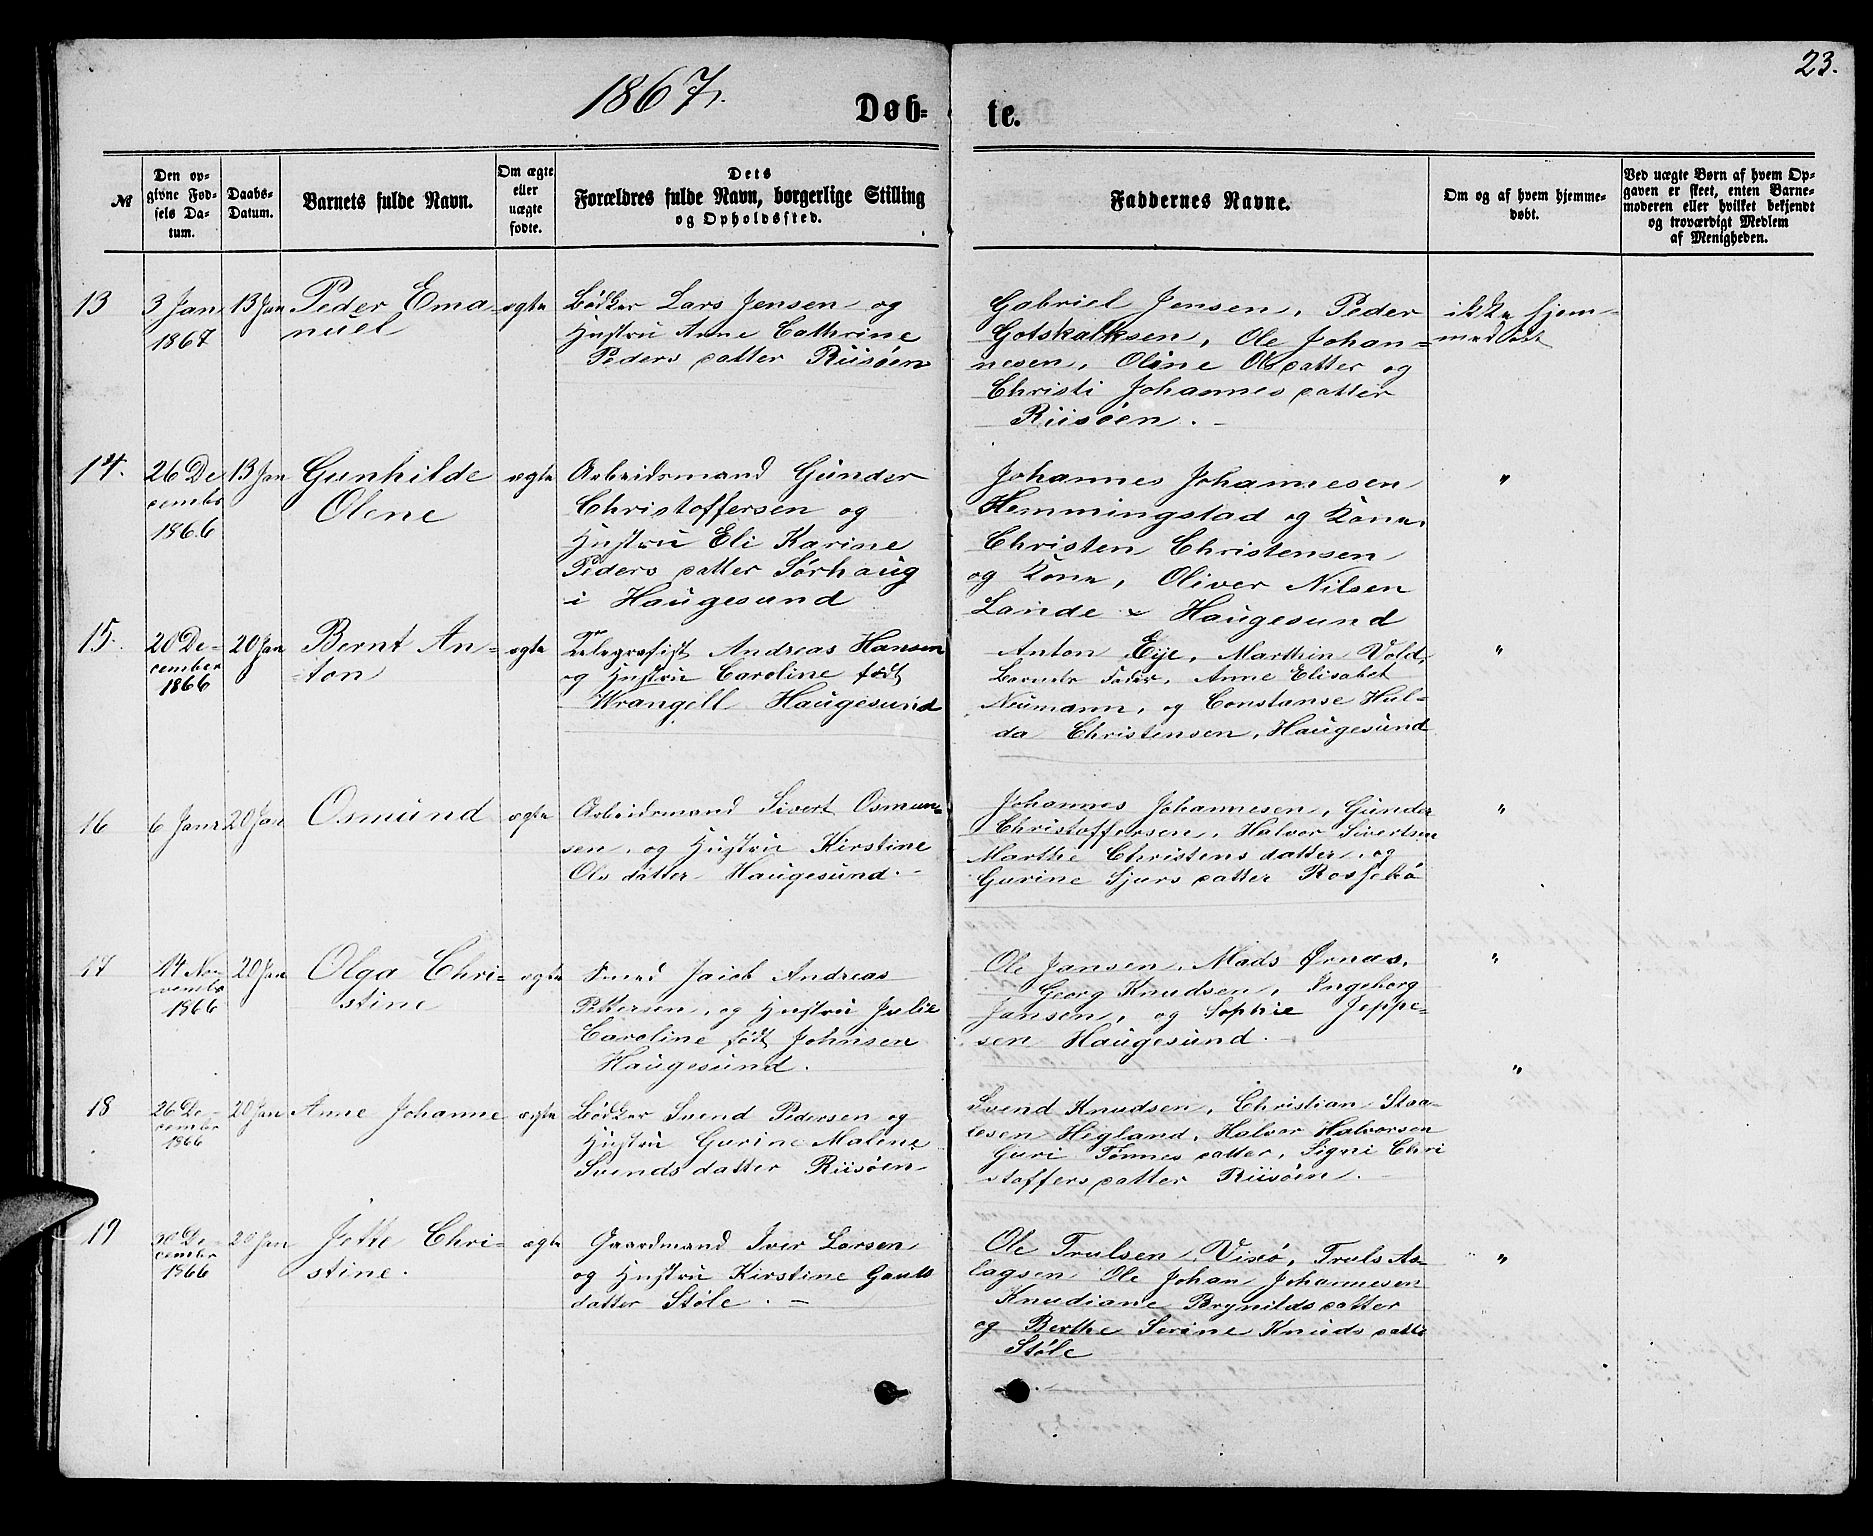 23.
1867.
Døb-
te.
№
Den op-
givne Fød-
sels Da-
tum.
Daabs-
Datum.
Barnets fulde Navn.
Om ægte
eller
uægte
fødte.
Dets
Forældres fulde Navn, borgerlige Stilling
og Opholdssted.
Faddernes Navne.
Om og af hvem hjemme-
døbt.
Ved uægte Børn af hvem Op-
gaven er skeet, enten Barne-
moderen eller hvilket bekjendt
og troværdigt Medlem
af Menigheden.
13
3 Jan
1867
13 Jan
Peder Ema
nuel
ægte
Bødker Lars Jensen og
Hustru Anne Cathrine
Peders datter Riisøen
Gabriel Jensen, Peder
Gotskalksen, Ole Johan=
nesen, Oline Olsdatter og
Christi Johannes datter
Riisøen.
ikke hjem-
medøbt
14.
26 De
cembr
1866
13 Jan
Gunhilde
Olene
ægte
Arbeidsmand Gunder
Christoffersen og
Hustru Eli Karine
Peders datter Sørhaug
i Haugesund
Johannes Johannesen
Hemmingstad og Kone,
Christen Christensen
og Kone, Oliver Nilsen
Lande Haugesund
"
15.
20 De-
cember
1866
20 Jan
Bernt An-
ton
ægte
Telegrafist Andreas Hansen
og Hustru Caroline født
Wrangell Haugesund
Anton Eije, Marthin Vold,
Barnets Fader, Anne Elisabet
Neumann, og Constanse Hul-
da Christensen, Haugesund
"
16
6 Janr
20 Jan
Osmund
ægte
Arbeidsmand Sivert Osmun-
sen, og Hustru Kirstine
Ols datter Haugesund.
Johannes Johannesen, Gunder
Christoffersen, Halvor Sivertsen
Marthe Christens datter, og
Gurine Sjurs datter
"
17
14 No-
vembr
1866
20 Jan
Olga Chri-
stine
ægte
Smed Jacob Andreas
Pettersen, og Hustru Julie
Caroline født Johnsen
Haugesund.
Ole Jansen, Mads Ørnas,
Georg Knudsen, Ingeborg
Jansen, og Sophie Jeppe-
sen Haugesund.
"
18
26 De-
cembr
1866
20 Jan
Anne Johanne
ægte
Bødker Svend Pedersen og
Hustru Gurine Malene
Svends datter Riisøen
Svend Knudsen, Christian Staa-
lesen Higland, Halvor Halvorsen
Guri Tønnes datter, Signi Chri
stoffers datter Riisøen.
"
19
20 De-
cembr
1866
20 Jan
Jotte Chri-
stine.
ægte
Gaardmand Iver Larsen
og Hustru Kirstine Gauts
datter Støle.
Ole Trulsen, Visø, Truls As-
lagsen Ole Johan Johannesen
Knudiane Brynilds datter
og Berthe Serine Knuds datter
Støle
"